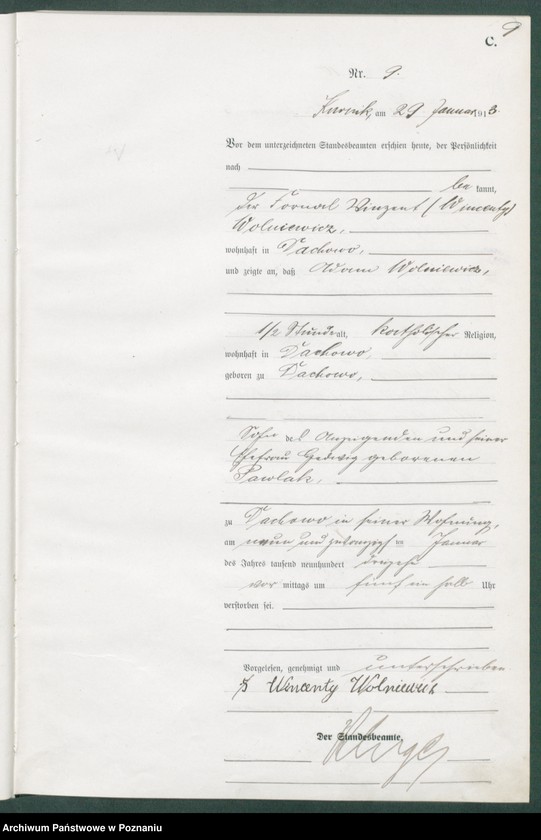 9
C.
Nr. 9.
Kurnik, am 29 Januar 1913
Vor dem unterzeichneten Standesbeamten erschien heute, der Persönlichkeit
nach
be kannt,
der Fornal Vinzent (Wincenty)
Wolniewicz,
wohnhaft in Dachowo,
und zeigte an, daß Adam Wolniewicz,
1/2 Stunde alt, katholischer Religion,
wohnhaft in Dachowo,
geboren zu Dachowo,
Sohn des Anzeigenden und seiner
Ehefrau Hedwig geborenen
Pawlak,
zu Dachowo in seiner Wohnung,
am neun und zwanzigsten Januar
des Jahres tausend neunhundert dreizehn
vor mittags um fünf ein halb Uhr
verstorben sei.
Vorgelesen, genehmigt und unterschrieben
Wincenty Wolniewicz
Der Standesbeamte.
Archiwum Państwowe w Poznaniu